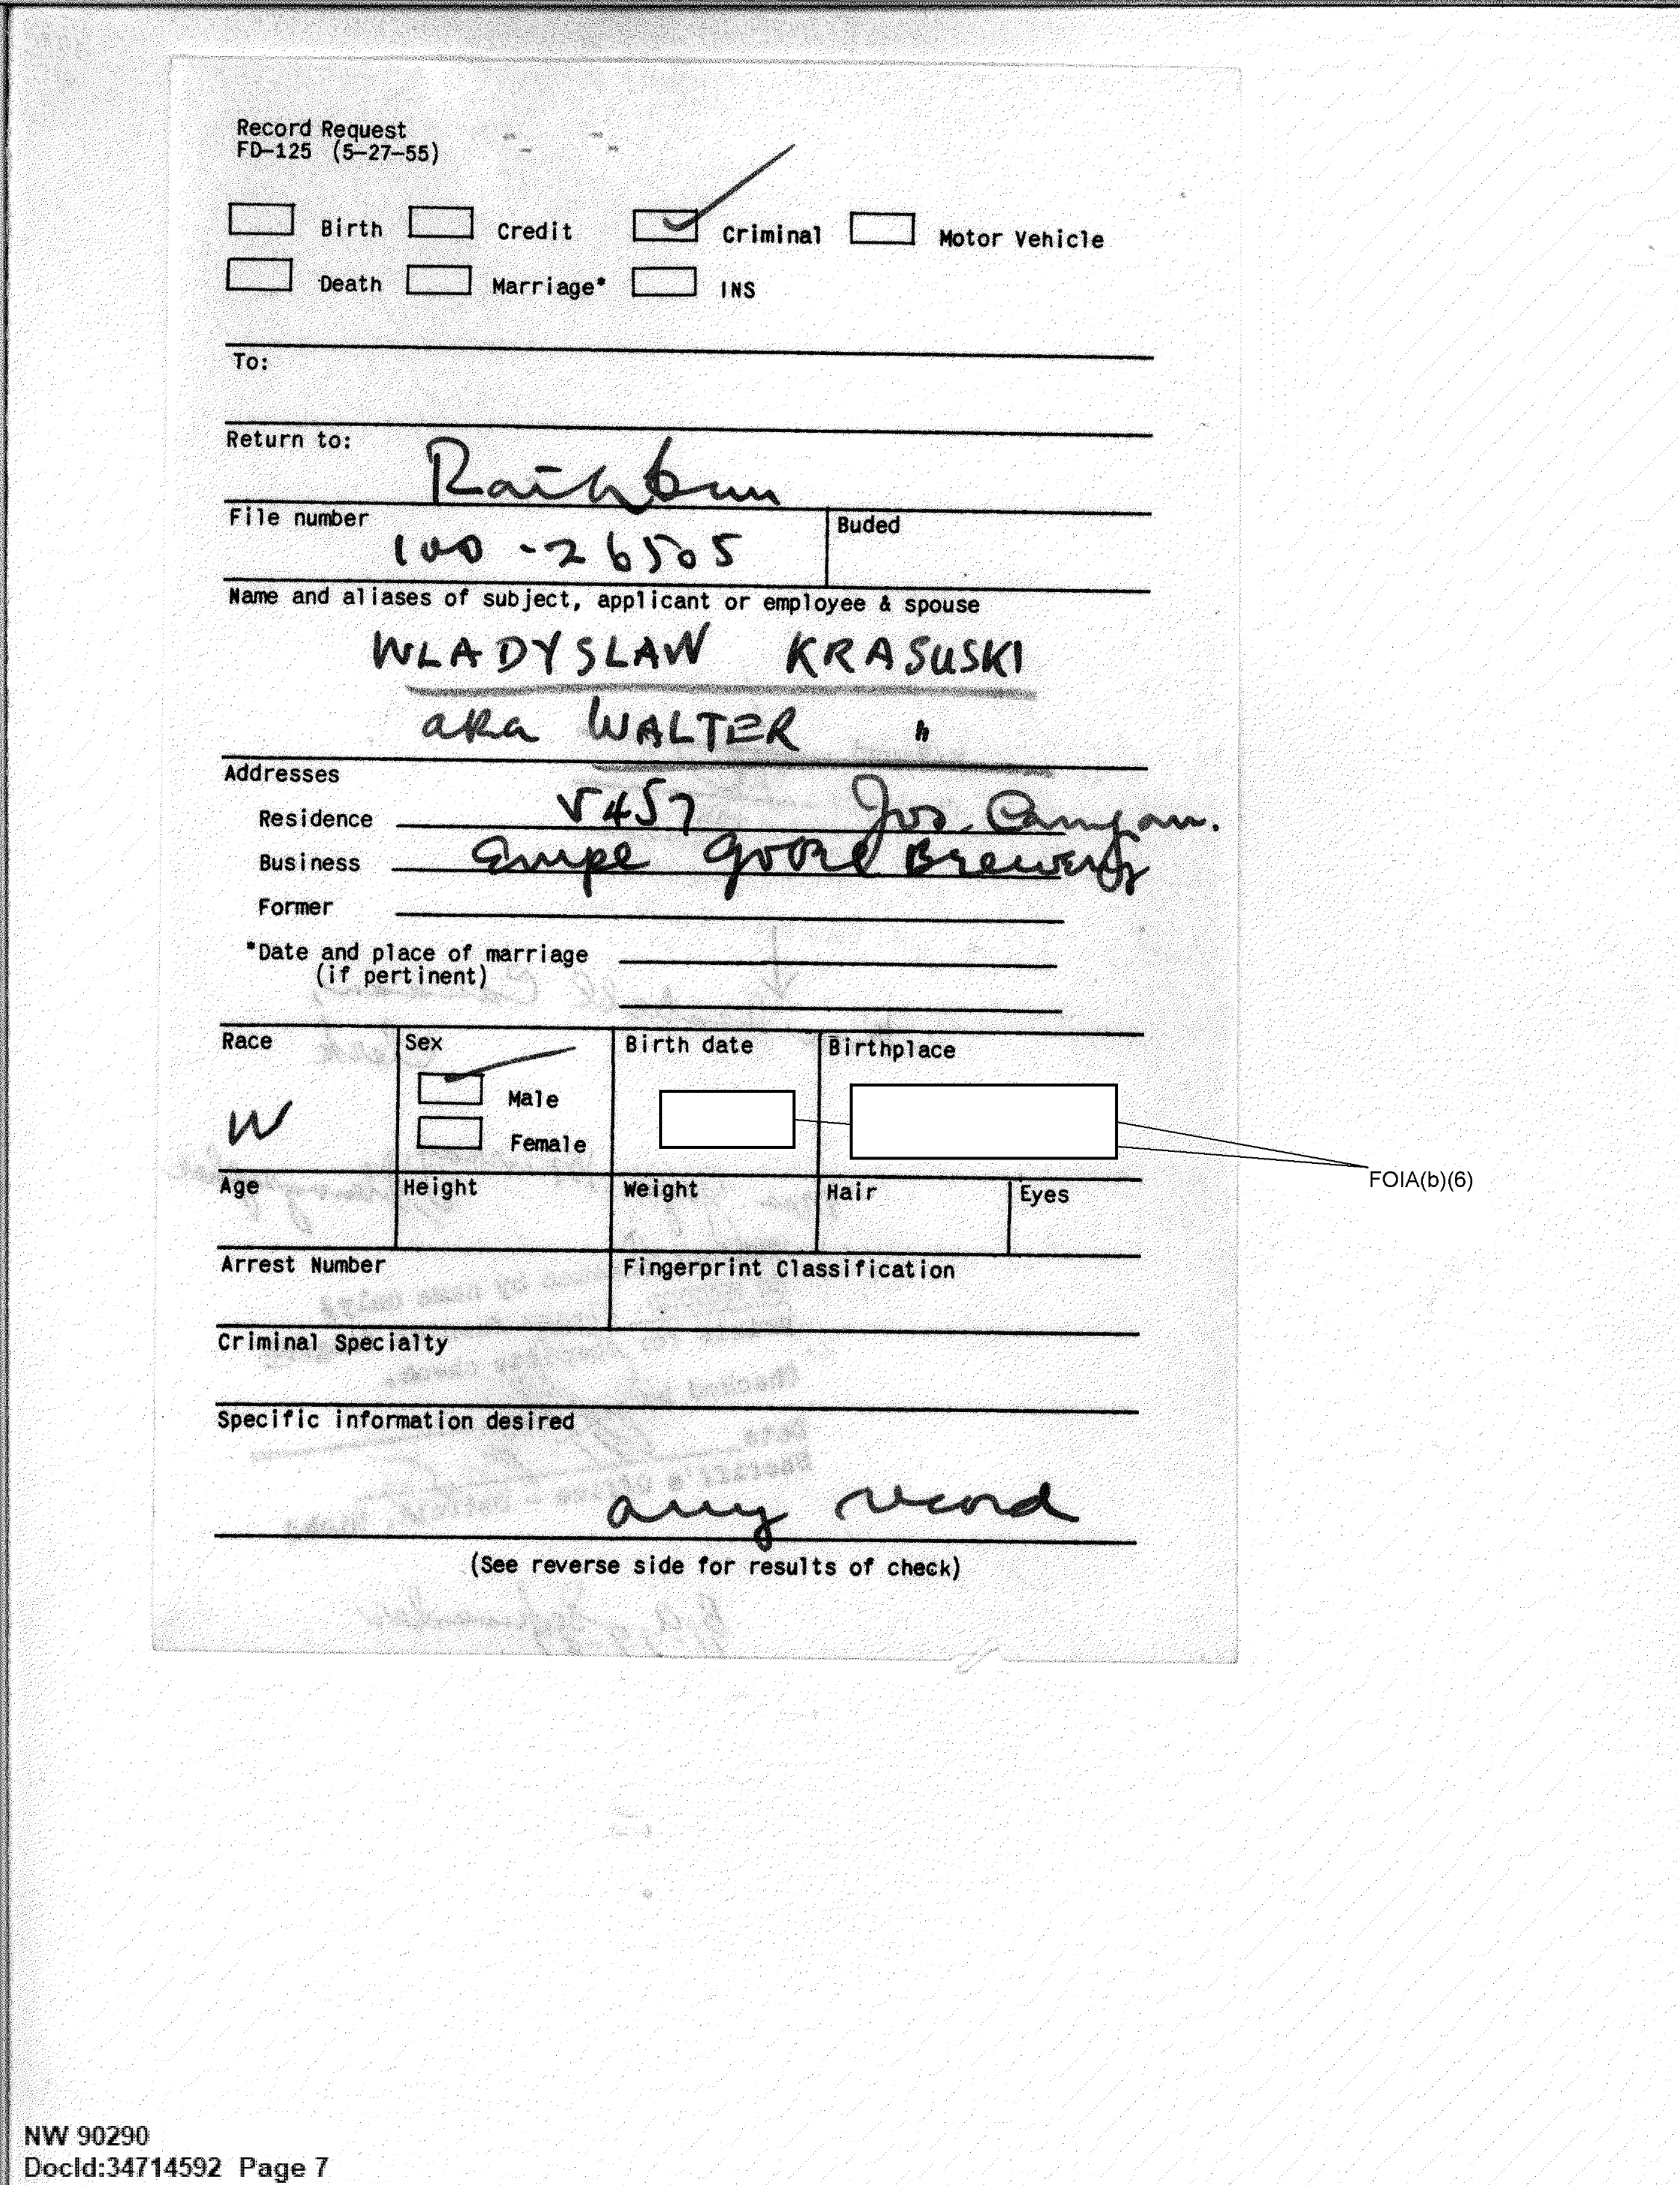 Record Request
FD-125 (5-27-55)
Birth Credit Criminal Motor Vehicle
Death Marriage* INS
To:
Return to: Rathbun
File number 100-26505 Buded
Name and aliases of subject, applicant or employee & spouse
WLADYSLAW KRASUSKI
aka WALTER "
Addresses
Residence 5457 Jos. Campau.
Business Empl Goebel Brewery
Former
*Date and place of marriage
(if pertinent)
Race Sex Birth date Birthplace
Male
W Female
FOIA(b)(6)
Age Height Weight Hair Eyes
Arrest Number Fingerprint Classification
Criminal Specialty
Specific information desired
any record
(See reverse side for results of check)
NW 90290
DocId:34714592 Page 7